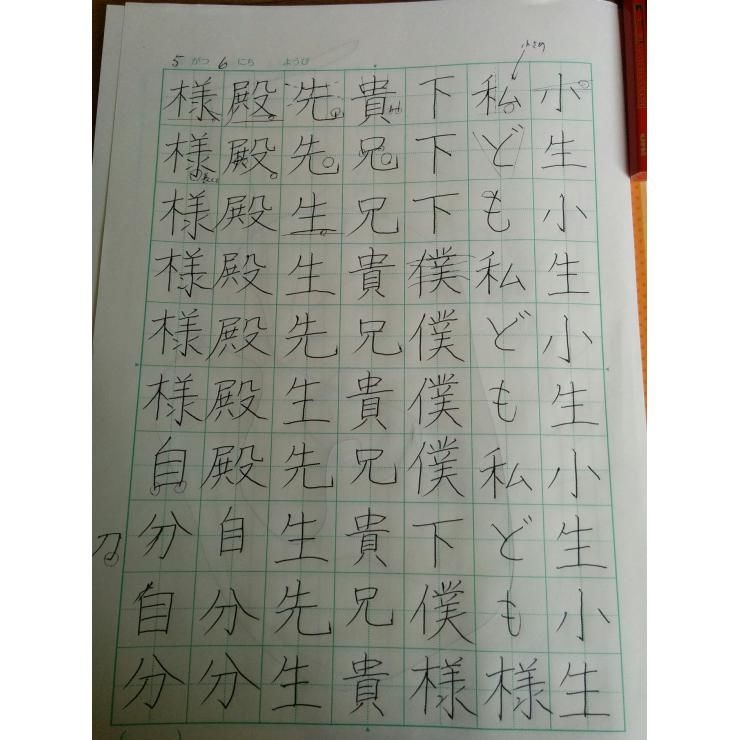 5がつ6にちようび
小さめ
小生小生小生小生小生
私ども私ども私ども様
下下下僕僕僕僕下僕様
貴兄兄貴兄貴兄貴兄貴
先先生生先生先生先生
殿殿殿殿殿殿殿自分分
様様様様様様自分自分
刀